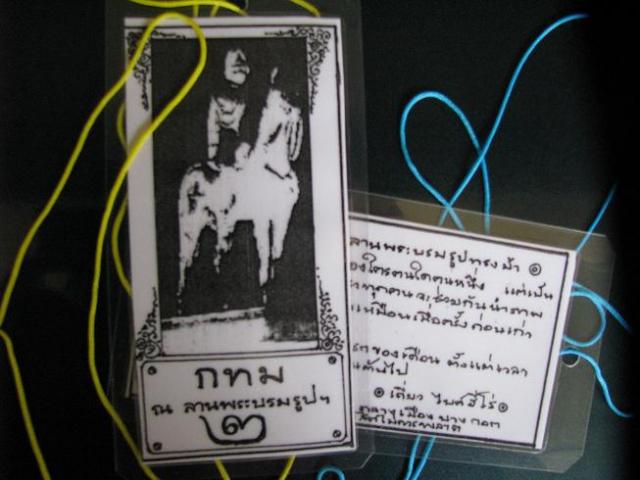 กทม
ณ ลานพระบรมรูปฯ
๒
ลานพระบรมรูปทรงม้า
องใครคนใดคนหนึ่ง แต่เป็น
ทุกคนจะช่วยกันนำภาพ
เหมือนเมื่อครั้งก่อนเก่า
ของเดือน ตั้งแต่เวลา
เป็นต้นไป
เดี่ยว ไบค์ฮีโร่
กลางเมือง บางกอก